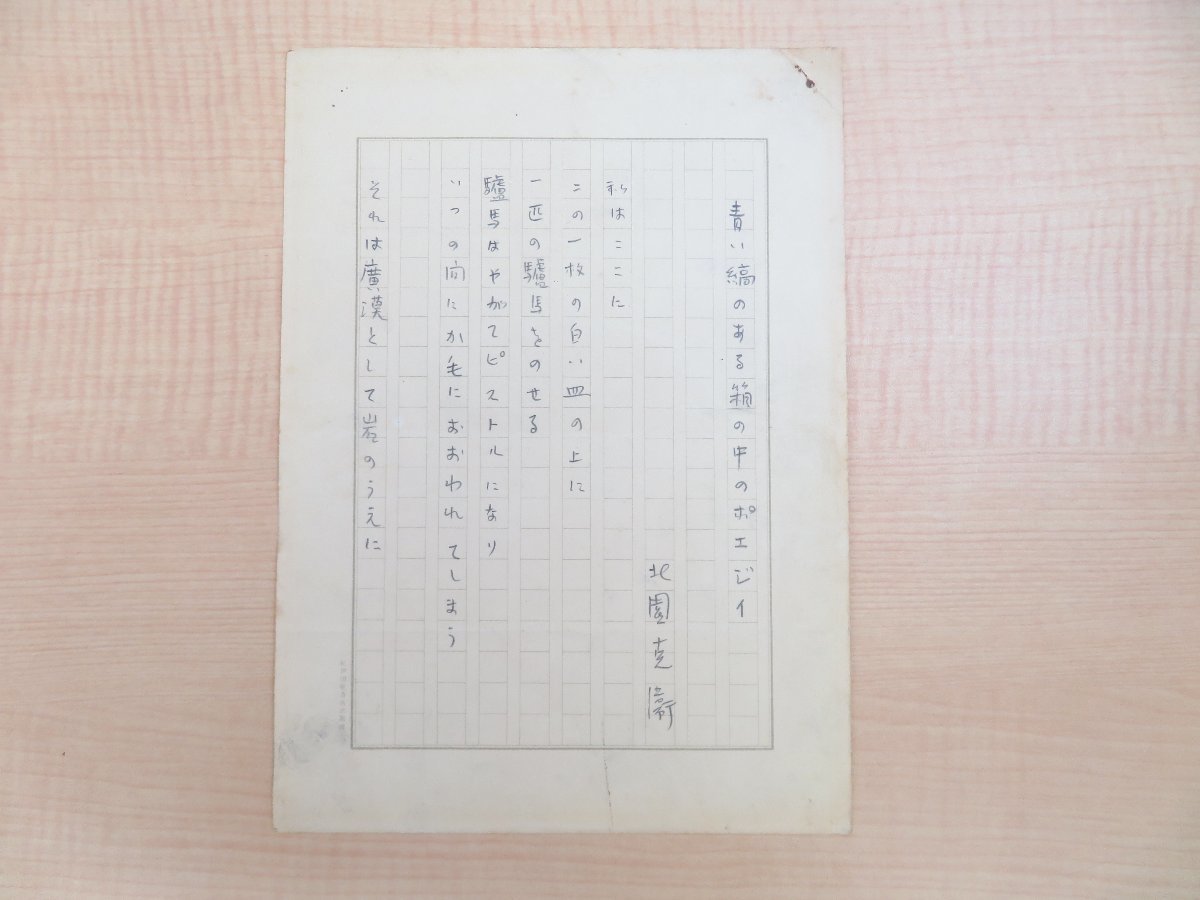 青い縞のある箱の中のポエジイ
北園克衞
私はここに
この一枚の白い皿の上に
一匹の驢馬をのせる
驢馬はやがてピストルになり
いつの間にか毛におおわれてしまう
それは廣漠として岩のうえに